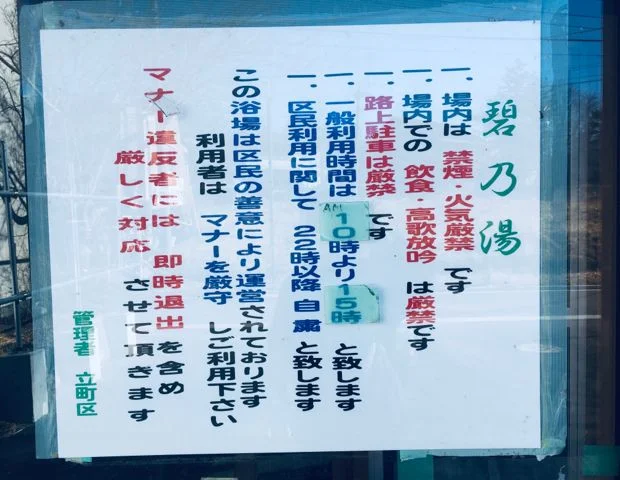 碧乃湯
一、場内は 禁煙・火気厳禁 です
一、場内での 飲食・高歌放吟 は厳禁です
一、路上駐車は厳禁 です
一、一般利用時間は AM 10時より15時 と致します
一、区民利用に関して 22時以降 自粛 と致します
この浴場は区民の善意により運営されております
利用者は マナーを厳守 しご利用下さい
マナー違反者には 即時退出 を含め
厳しく対応 させて頂きます
管理者 立町区